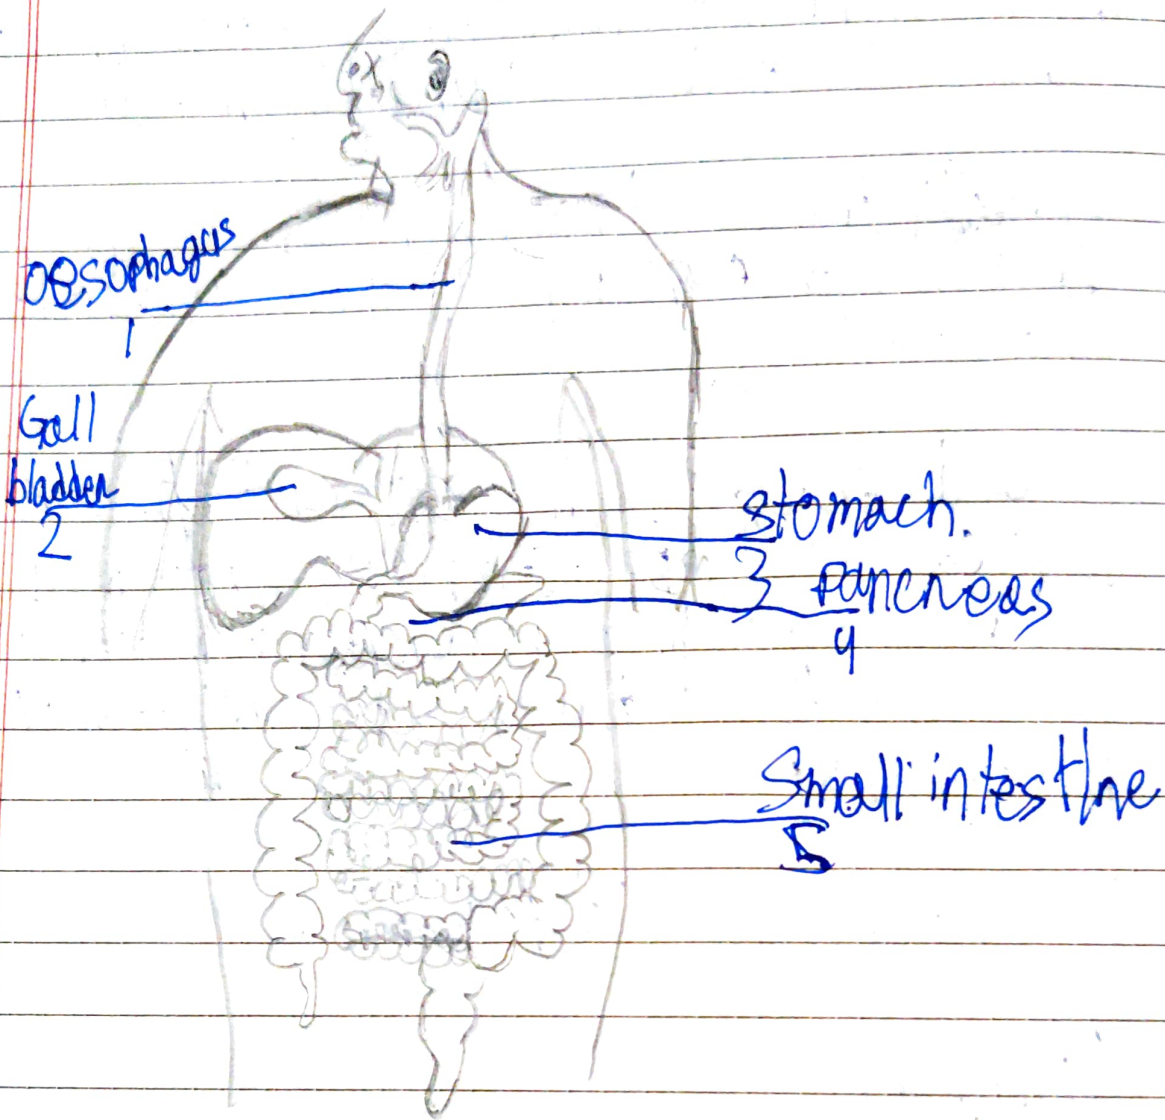 Oesophagus
1
Gall
bladder
2
stomach.
3
pancreas
4
Small intestine
5